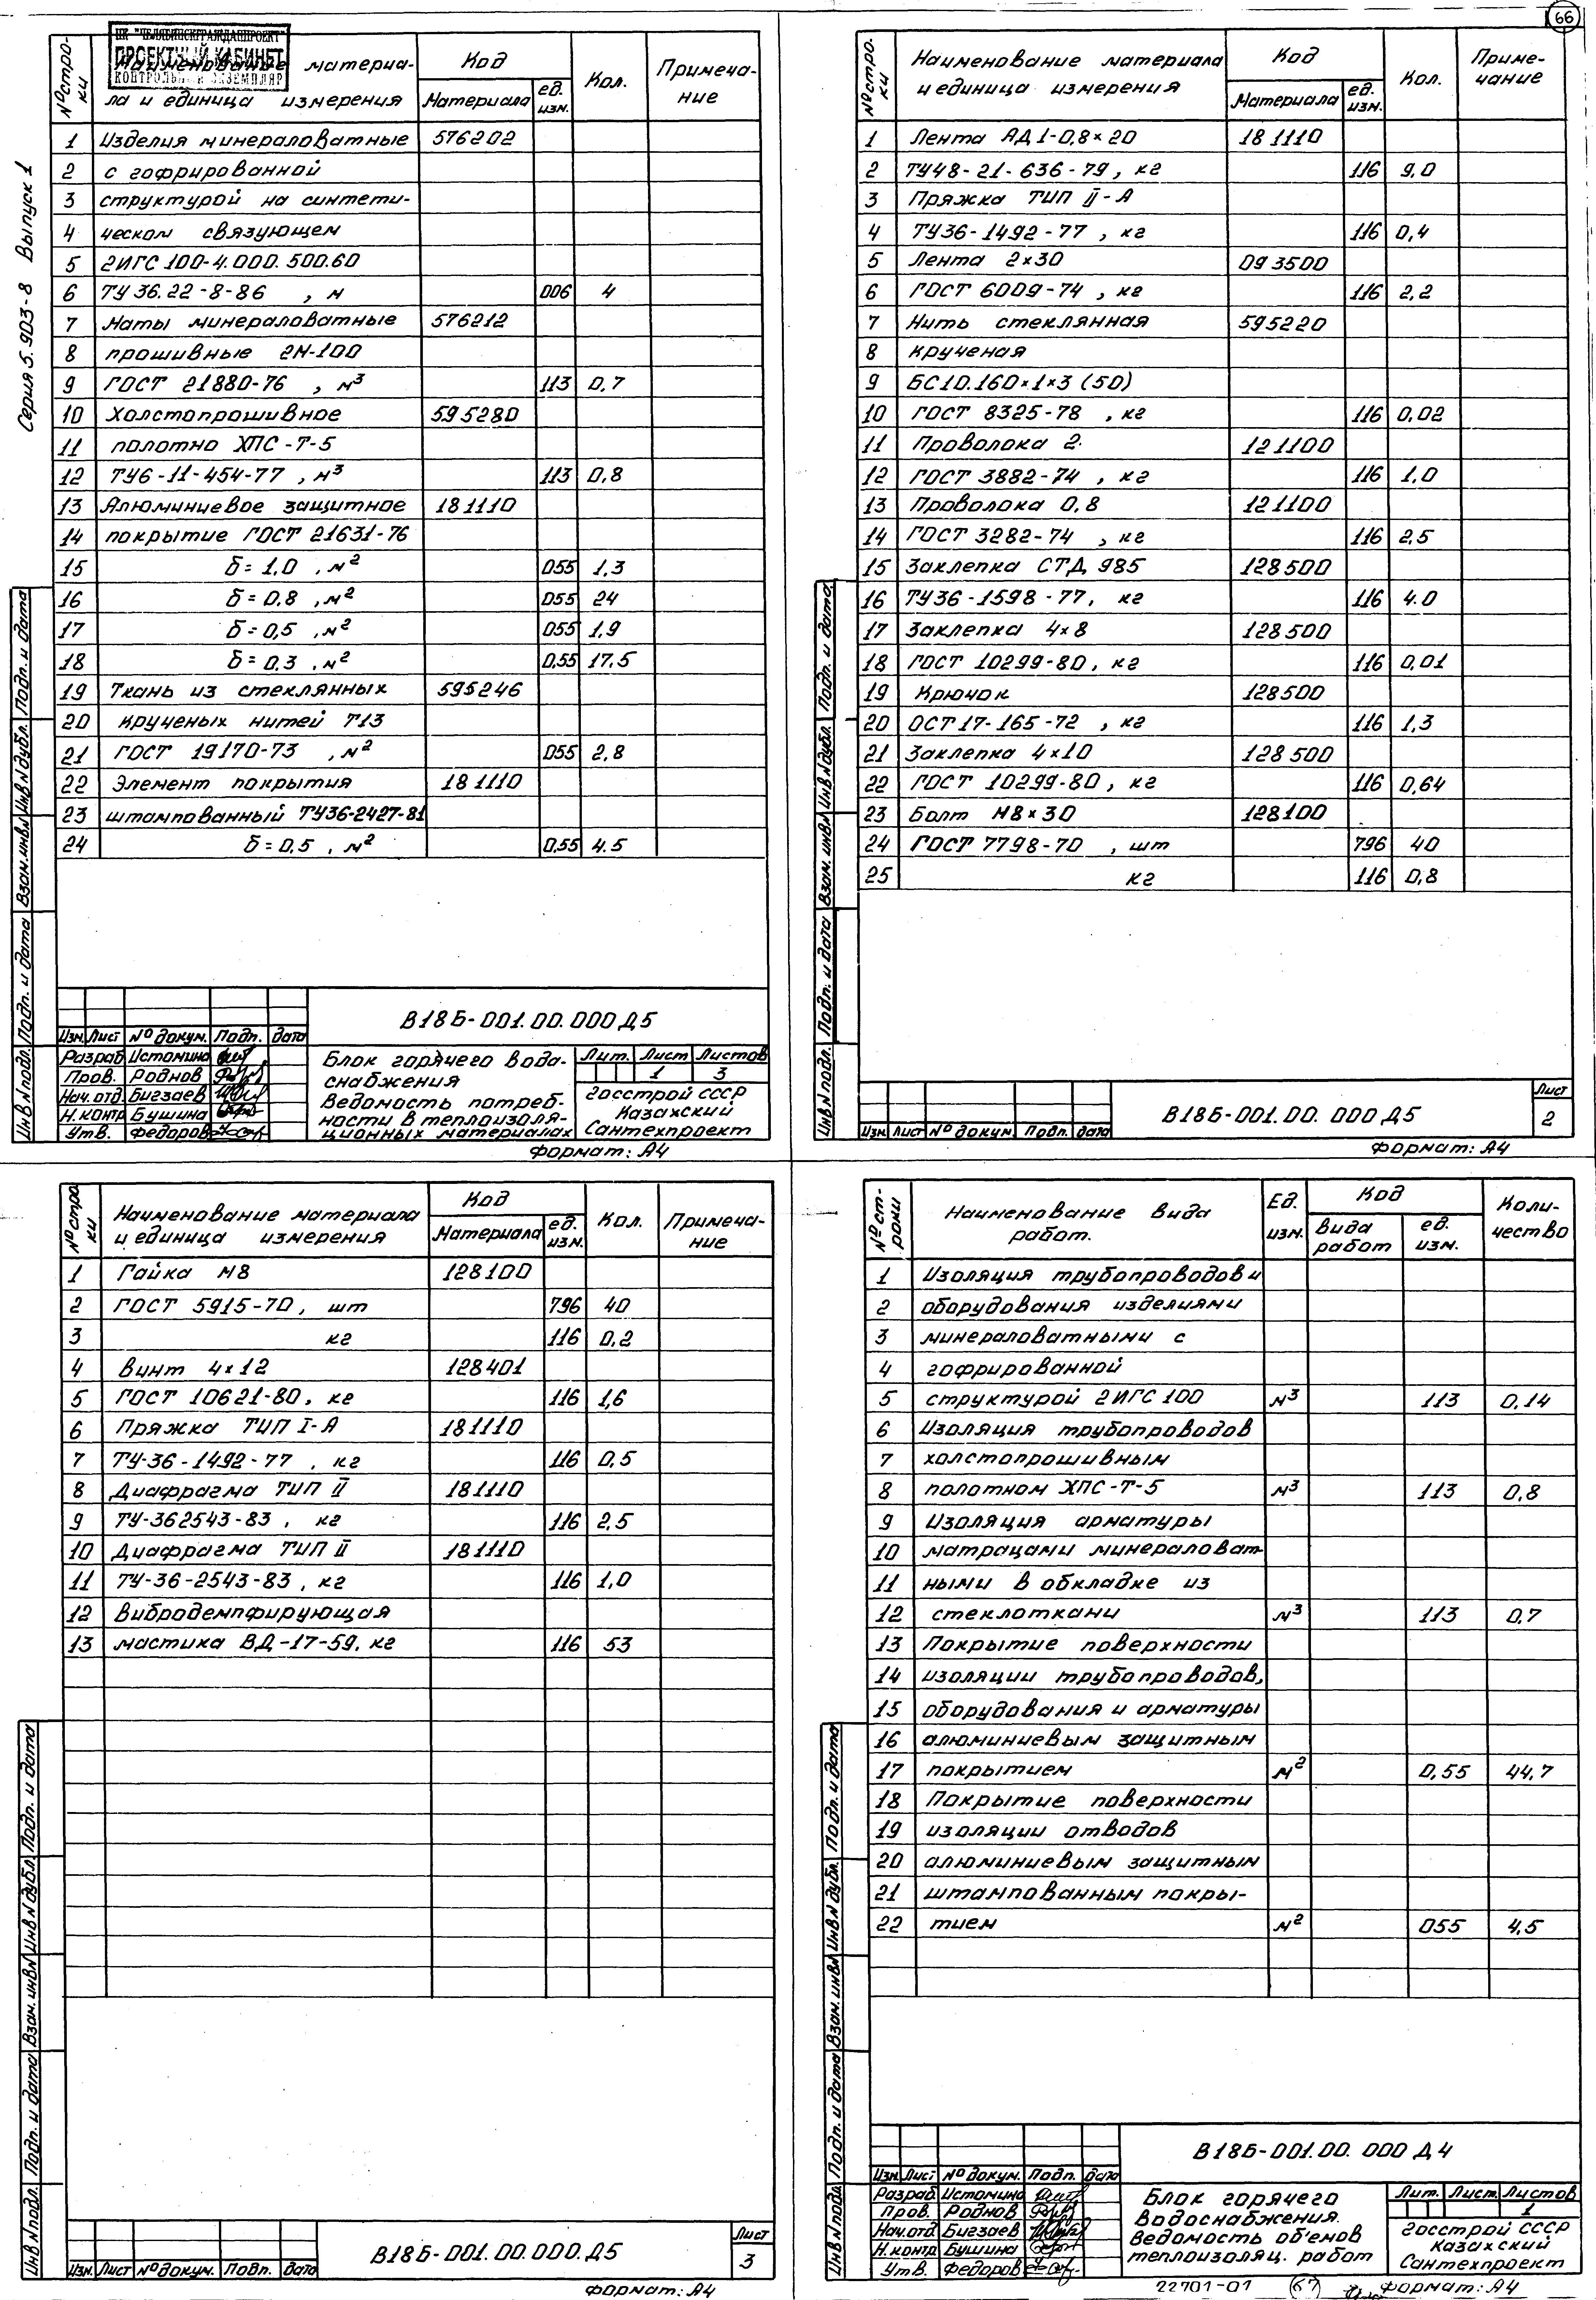 66
ПК "ЧЕЛЯБИНСКГРАЖДАНПРОЕКТ"
ПРОЕКТНЫЙ КАБИНЕТ
КОНТРОЛЬНЫЙ ЭКЗЕМПЛЯР
Серия 5.903-8 Выпуск 1
№ стро-ки | Наименование материа-ла и единица измерения | Код | Материала | ед. изм. | Кол. | Примеча-ние
1 Изделия минераловатные 576202
2 с гофрированной
3 структурой на синтети-
4 ческом связующем
5 2ИГС 100-4.000.500.60
6 ТУ 36.22-8-86 , м 006 4
7 Маты минераловатные 576212
8 прошивные 2М-100
9 ГОСТ 21880-76 , м³ 113 0,7
10 Холстопрошивное 595280
11 полотно ХПС-Т-5
12 ТУ6-11-454-77 , м³ 113 0,8
13 Алюминиевое защитное 181110
14 покрытие ГОСТ 21631-76
15 δ=1,0 , м² 055 1,3
16 δ=0,8 , м² 055 24
17 δ=0,5 , м² 055 1,9
18 δ=0,3 , м² 0,55 17,5
19 Ткань из стеклянных 595246
20 крученых нитей Т13
21 ГОСТ 19170-73 , м² 055 2,8
22 Элемент покрытия 181110
23 штампованный ТУ36-2427-81
24 δ=0,5 , м² 0,55 4.5
Инв N подл. Подп. и дата Взам. инв N Инв N дубл. Подп. и дата
В18Б-001.00.000 Д5
Изм. Лист N° докум. Подп. дата
Разраб Истомина
Пров. Роднов
Нач. отд. Бигзаев
Н. контр Бушина
Утв. Федоров
Блок горячего водо-
снабжения
Ведомость потреб-
ности в теплоизоля-
ционных материалах
Лит. Лист Листов
1 3
Госстрой СССР
Казахский
Сантехпроект
Формат: А4
№ стро-ки | Наименование материала и единица измерения | Код | Материала | ед. изм. | Кол. | Приме-чание
1 Лента АД1-0,8×20 181110
2 ТУ48-21-636-79, кг 116 9,0
3 Пряжка ТИП II-А
4 ТУ36-1492-77 , кг 116 0,4
5 Лента 2×30 093500
6 ГОСТ 6009-74 , кг 116 2,2
7 Нить стеклянная 595220
8 крученая
9 БС10.160×1×3 (50)
10 ГОСТ 8325-78 , кг 116 0,02
11 Проволока 2. 121100
12 ГОСТ 3882-74 , кг 116 1,0
13 Проволока 0,8 121100
14 ГОСТ 3282-74 , кг 116 2,5
15 Заклепка СТД 985 128500
16 ТУ36-1598-77, кг 116 4.0
17 Заклепка 4×8 128500
18 ГОСТ 10299-80, кг 116 0,01
19 Крючок 128500
20 ОСТ 17-165-72 , кг 116 1,3
21 Заклепка 4×10 128500
22 ГОСТ 10299-80, кг 116 0,64
23 Болт М8×30 128100
24 ГОСТ 7798-70 , шт 796 40
25 кг 116 0,8
Инв N подл. Подп. и дата Взам. инв N Инв N дубл. Подп. и дата
Изм. Лист N° докум. Подп. дата
В18Б-001.00.000 Д5
Лист
2
Формат: А4
№ стро-ки | Наименование материала и единица измерения | Код | Материала | ед. изм. | Кол. | Примеча-ние
1 Гайка М8 128100
2 ГОСТ 5915-70, шт 796 40
3 кг 116 0,2
4 Винт 4×12 128401
5 ГОСТ 10621-80, кг 116 1,6
6 Пряжка ТИП I-А 181110
7 ТУ-36-1492-77 , кг 116 0,5
8 Диафрагма ТИП II 181110
9 ТУ-362543-83, кг 116 2,5
10 Диафрагма ТИП II 181110
11 ТУ-36-2543-83, кг 116 1,0
12 Вибродемпфирующая
13 мастика ВД-17-59, кг 116 53
Инв N подл. Подп. и дата Взам. инв N Инв N дубл. Подп. и дата
Изм. Лист N° докум. Подп. дата
В18Б-001.00.000.Д5
Лист
3
Формат: А4
№ ст-роки | Наименование вида работ. | Ед. изм. | Код | Вида работ | ед. изм. | Коли-чество
1 Изоляция трубопроводов и
2 оборудования изделиями
3 минераловатными с
4 гофрированной
5 структурой 2ИГС 100 м³ 113 0,14
6 Изоляция трубопроводов
7 холстопрошивным
8 полотном ХПС-Т-5 м³ 113 0,8
9 Изоляция арматуры
10 матрацами минераловат-
11 ными в обкладке из
12 стеклоткани м³ 113 0.7
13 Покрытие поверхности
14 изоляции трубопроводов,
15 оборудования и арматуры
16 алюминиевым защитным
17 покрытием м² 0,55 44,7
18 Покрытие поверхности
19 изоляции отводов
20 алюминиевым защитным
21 штампованным покры-
22 тием м² 055 4,5
Инв N подл. Подп. и дата Взам. инв N Инв N дубл. Подп. и дата
В18Б-001.00.000 Д4
Изм. Лист N° докум. Подп. дата
Разраб Истомина
Пров. Роднов
Нач. отд. Бигзаев
Н. контр Бушина
Утв. Федоров
Блок горячего
водоснабжения.
Ведомость объемов
теплоизоляц. работ
Лит. Лист Листов
1
Госстрой СССР
Казахский
Сантехпроект
22701-01 67 Формат: А4